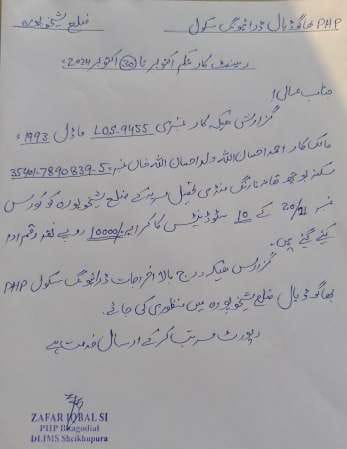 PHP بھاگوڈیال ڈرائیونگ سکول ضلع شیخوپورہ
رینٹ کار یکم اکتوبر تا 30 اکتوبر 2024ء
جناب عالی!
گزارش ہیکہ کار نمبری LOS-9455 ماڈل 1993ء
مالک کار احمد احسان اللہ ولد احسان اللہ خان 35401-7890839-5
سکنہ منڈی تحصیل ضلع شیخوپورہ کو کورس
نمبر 20/21 کے 10 سٹوڈینٹس کا کرایہ 10000/- روپے نقد رقم ادا
کیئے گئے ہیں۔
گزارش ہیکہ درج بالا اخراجات ڈرائیونگ سکول PHP
بھاگوڈیال ضلع شیخوپورہ میں منظوری کی جائے۔
رپورٹ مرتب کر کے ارسال خدمت ہے
ZAFAR IQBAL SI
PHP Bhagodial
DLIMS Sheikhupura